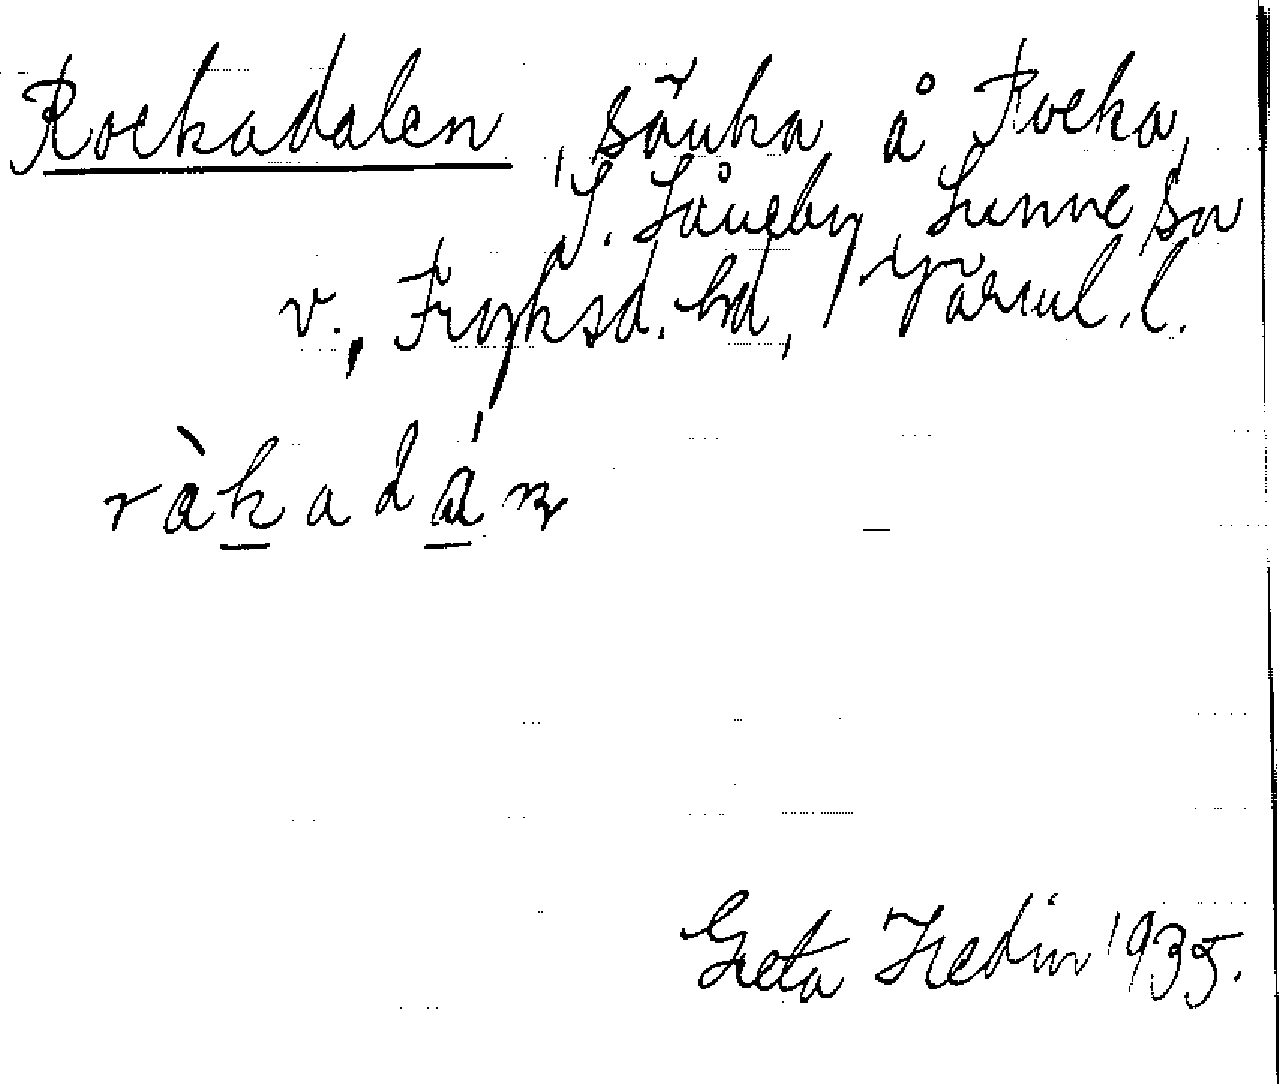 Rockadalen, sänka å Rocka,
S. Låneby, Lunne sn
v., Fryksd. hd, Värml. l.
ràkadán
Greta Hedin 1935.